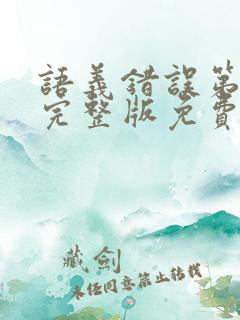 語義錯誤第
完整版免費
藏劍
未经同意禁止转载